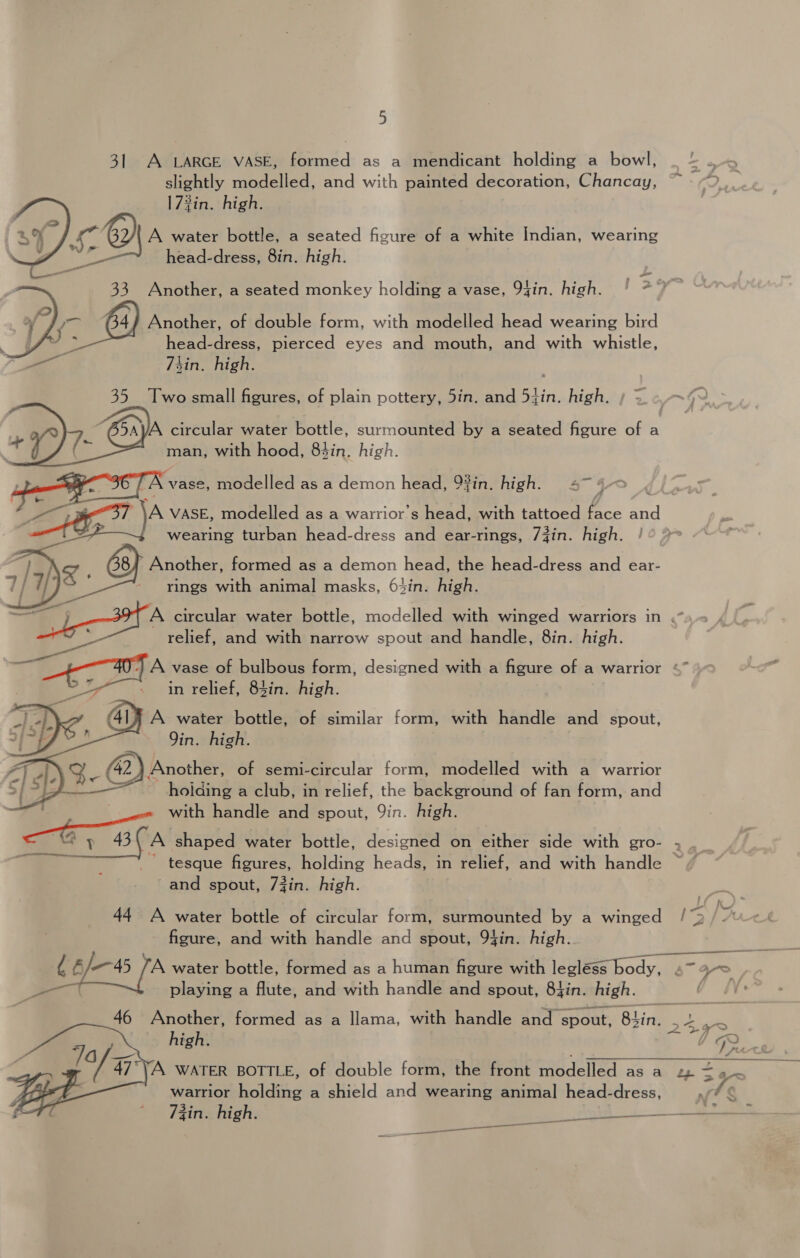 5
31 A LARGE VASE, formed as a mendicant holding a bowl,
slightly modelled, and with painted decoration, Chancay,
17¾in. high.
62 A water bottle, a seated figure of a white Indian, wearing
head-dress, 8in. high.
33 Another, a seated monkey holding a vase, 9¼in. high.
64 Another, of double form, with modelled head wearing bird
head-dress, pierced eyes and mouth, and with whistle,
7½in. high.
35 Two small figures, of plain pottery, 5in. and 5¼in. high.
65A A circular water bottle, surmounted by a seated figure of a
man, with hood, 8½in. high.
36 A vase, modelled as a demon head, 9¾in. high.
37 A VASE, modelled as a warrior's head, with tattoed face and
wearing turban head-dress and ear-rings, 7¾in. high.
68 Another, formed as a demon head, the head-dress and ear-
rings with animal masks, 6½in. high.
39 A circular water bottle, modelled with winged warriors in
relief, and with narrow spout and handle, 8in. high.
40 A vase of bulbous form, designed with a figure of a warrior
in relief, 8½in. high.
41 A water bottle, of similar form, with handle and spout,
9in. high.
42 Another, of semi-circular form, modelled with a warrior
holding a club, in relief, the background of fan form, and
with handle and spout, 9in. high.
43 A shaped water bottle, designed on either side with gro-
tesque figures, holding heads, in relief, and with handle
and spout, 7¾in. high.
44 A water bottle of circular form, surmounted by a winged
figure, and with handle and spout, 9¼in. high.
45 A water bottle, formed as a human figure with legless body,
playing a flute, and with handle and spout, 8¼in. high.
46 Another, formed as a llama, with handle and spout, 8½in.
high.
47 A WATER BOTTLE, of double form, the front modelled as a
warrior holding a shield and wearing animal head-dress,
7¾in. high.